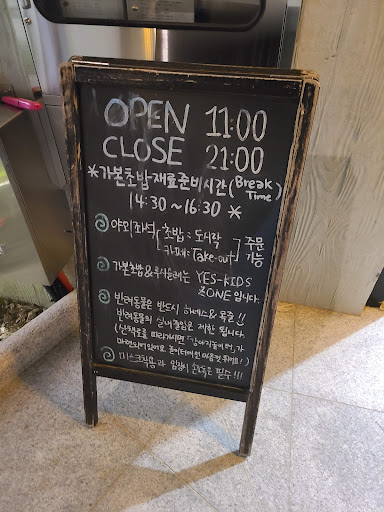 OPEN 11:00
CLOSE 21:00
*가본초밥 재료준비시간(Break Time)
14:30~16:30 *
야외좌석[초밥:도시락 카페:Take-out] 주문 가능
가본초밥&루시올레는 YES-KIDS
ZONE입니다.
반려동물은 반드시 하네스&목줄!!
반려동물의 실내출입은 제한됩니다.
(산책로를 따라가시면 "강아지놀이터"가
마련되어 있어요
마스크착용과 입장시 손소독은 필수!!!